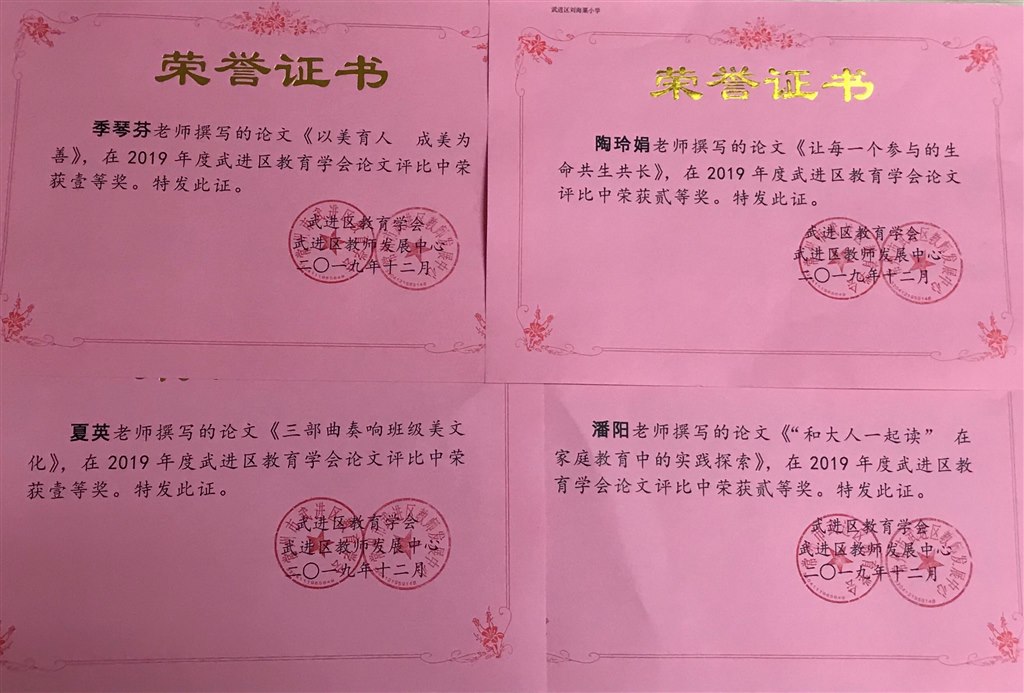 荣誉证书
季琴芬老师撰写的论文《以美育人 成美为
善》，在 2019 年度武进区教育学会论文评比中荣
获壹等奖。特发此证。
武进区教育学会
武进区教师发展中心
二〇一九年十二月
武进区刘海粟小学
荣誉证书
陶玲娟老师撰写的论文《让每一个参与的生
命共生共长》，在 2019 年度武进区教育学会论文
评比中荣获贰等奖。特发此证。
武进区教育学会
武进区教师发展中心
二〇一九年十二月
夏英老师撰写的论文《三部曲奏响班级美文
化》，在 2019 年度武进区教育学会论文评比中荣
获壹等奖。特发此证。
武进区教育学会
武进区教师发展中心
二〇一九年十二月
潘阳老师撰写的论文《“和大人一起读” 在
家庭教育中的实践探索》，在 2019 年度武进区教
育学会论文评比中荣获贰等奖。特发此证。
武进区教育学会
武进区教师发展中心
二〇一九年十二月